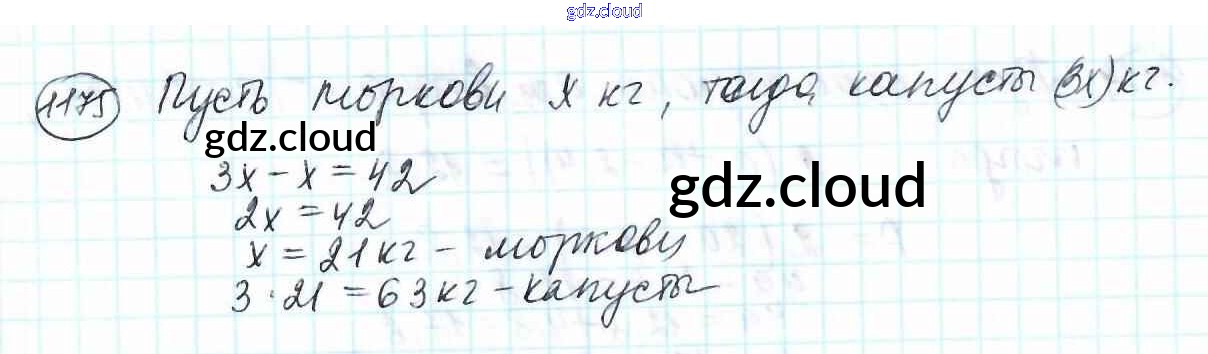 gdz.cloud
1175 Пусть моркови х кг, тогда капусты (3х)кг.
gdz.cloud
3х - х = 42
gdz.cloud
2х = 42
х = 21кг - моркови
3 · 21 = 63кг - капусты